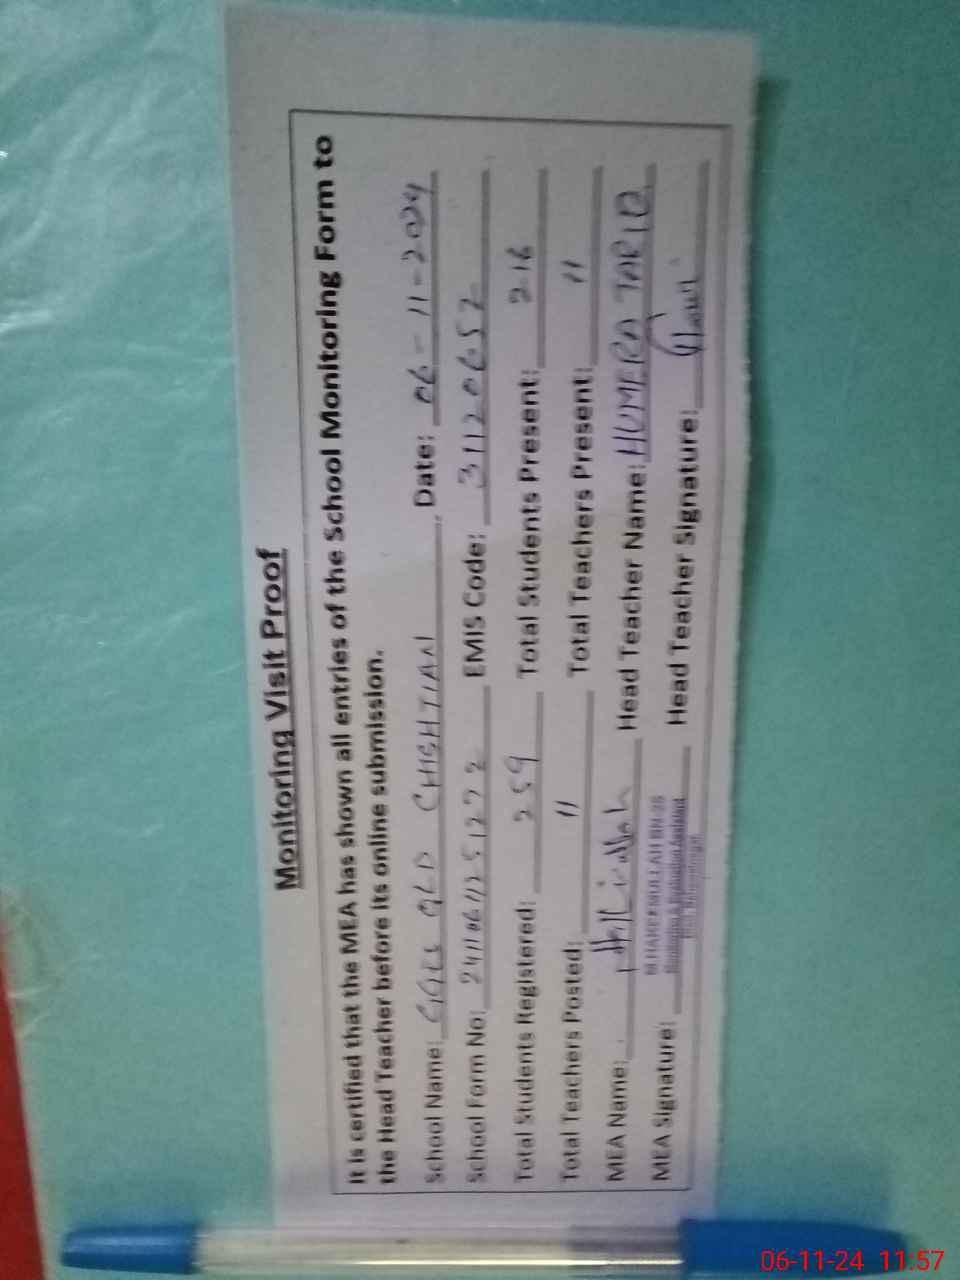 Monitoring Visit Proof
It is certified that the MEA has shown all entries of the School Monitoring Form to
the Head Teacher before its online submission.
School Name: GGES OLD CHISHTIAN Date: 06-11-2024
School Form No: 24110611251272 EMIS Code: 31120652
Total Students Registered: 259 Total Students Present: 216
Total Teachers Posted: 11 Total Teachers Present: 11
MEA Name: Head Teacher Name: HUMERA TARIQ
M.HAKEEMULLAH BN-28
Monitoring & Evaluation Assistant
MEA Signature: Head Teacher Signature:
06-11-24 11:57